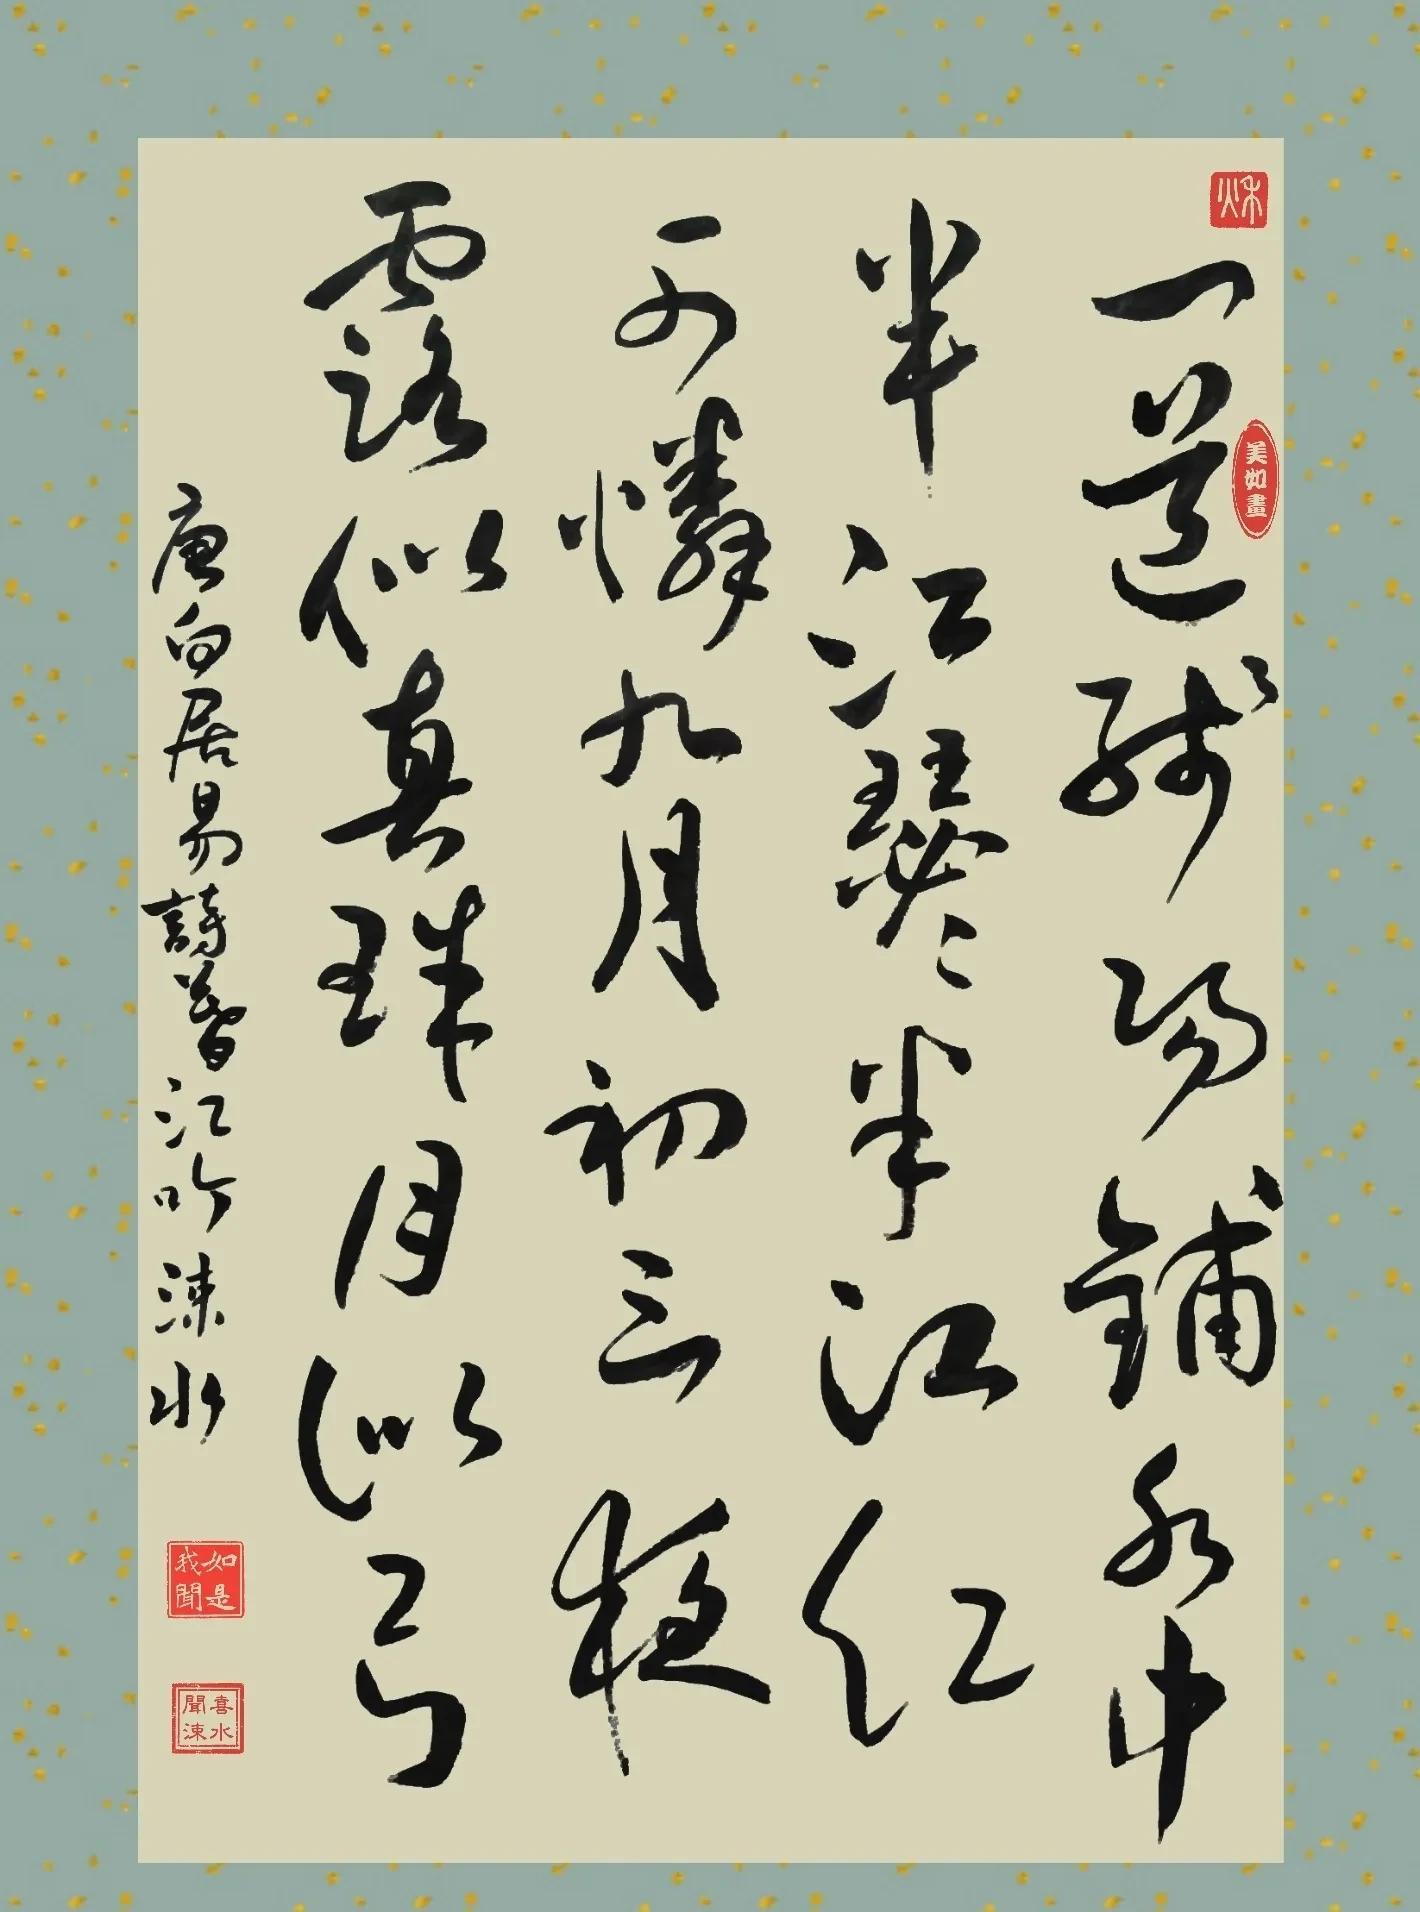 秌
一道残陽鋪水中
美如畫
半江瑟瑟半江紅
可憐九月初三夜
露似真珠月似弓
唐白居易詩暮江吟 涑水
如是我聞
聞喜涑水